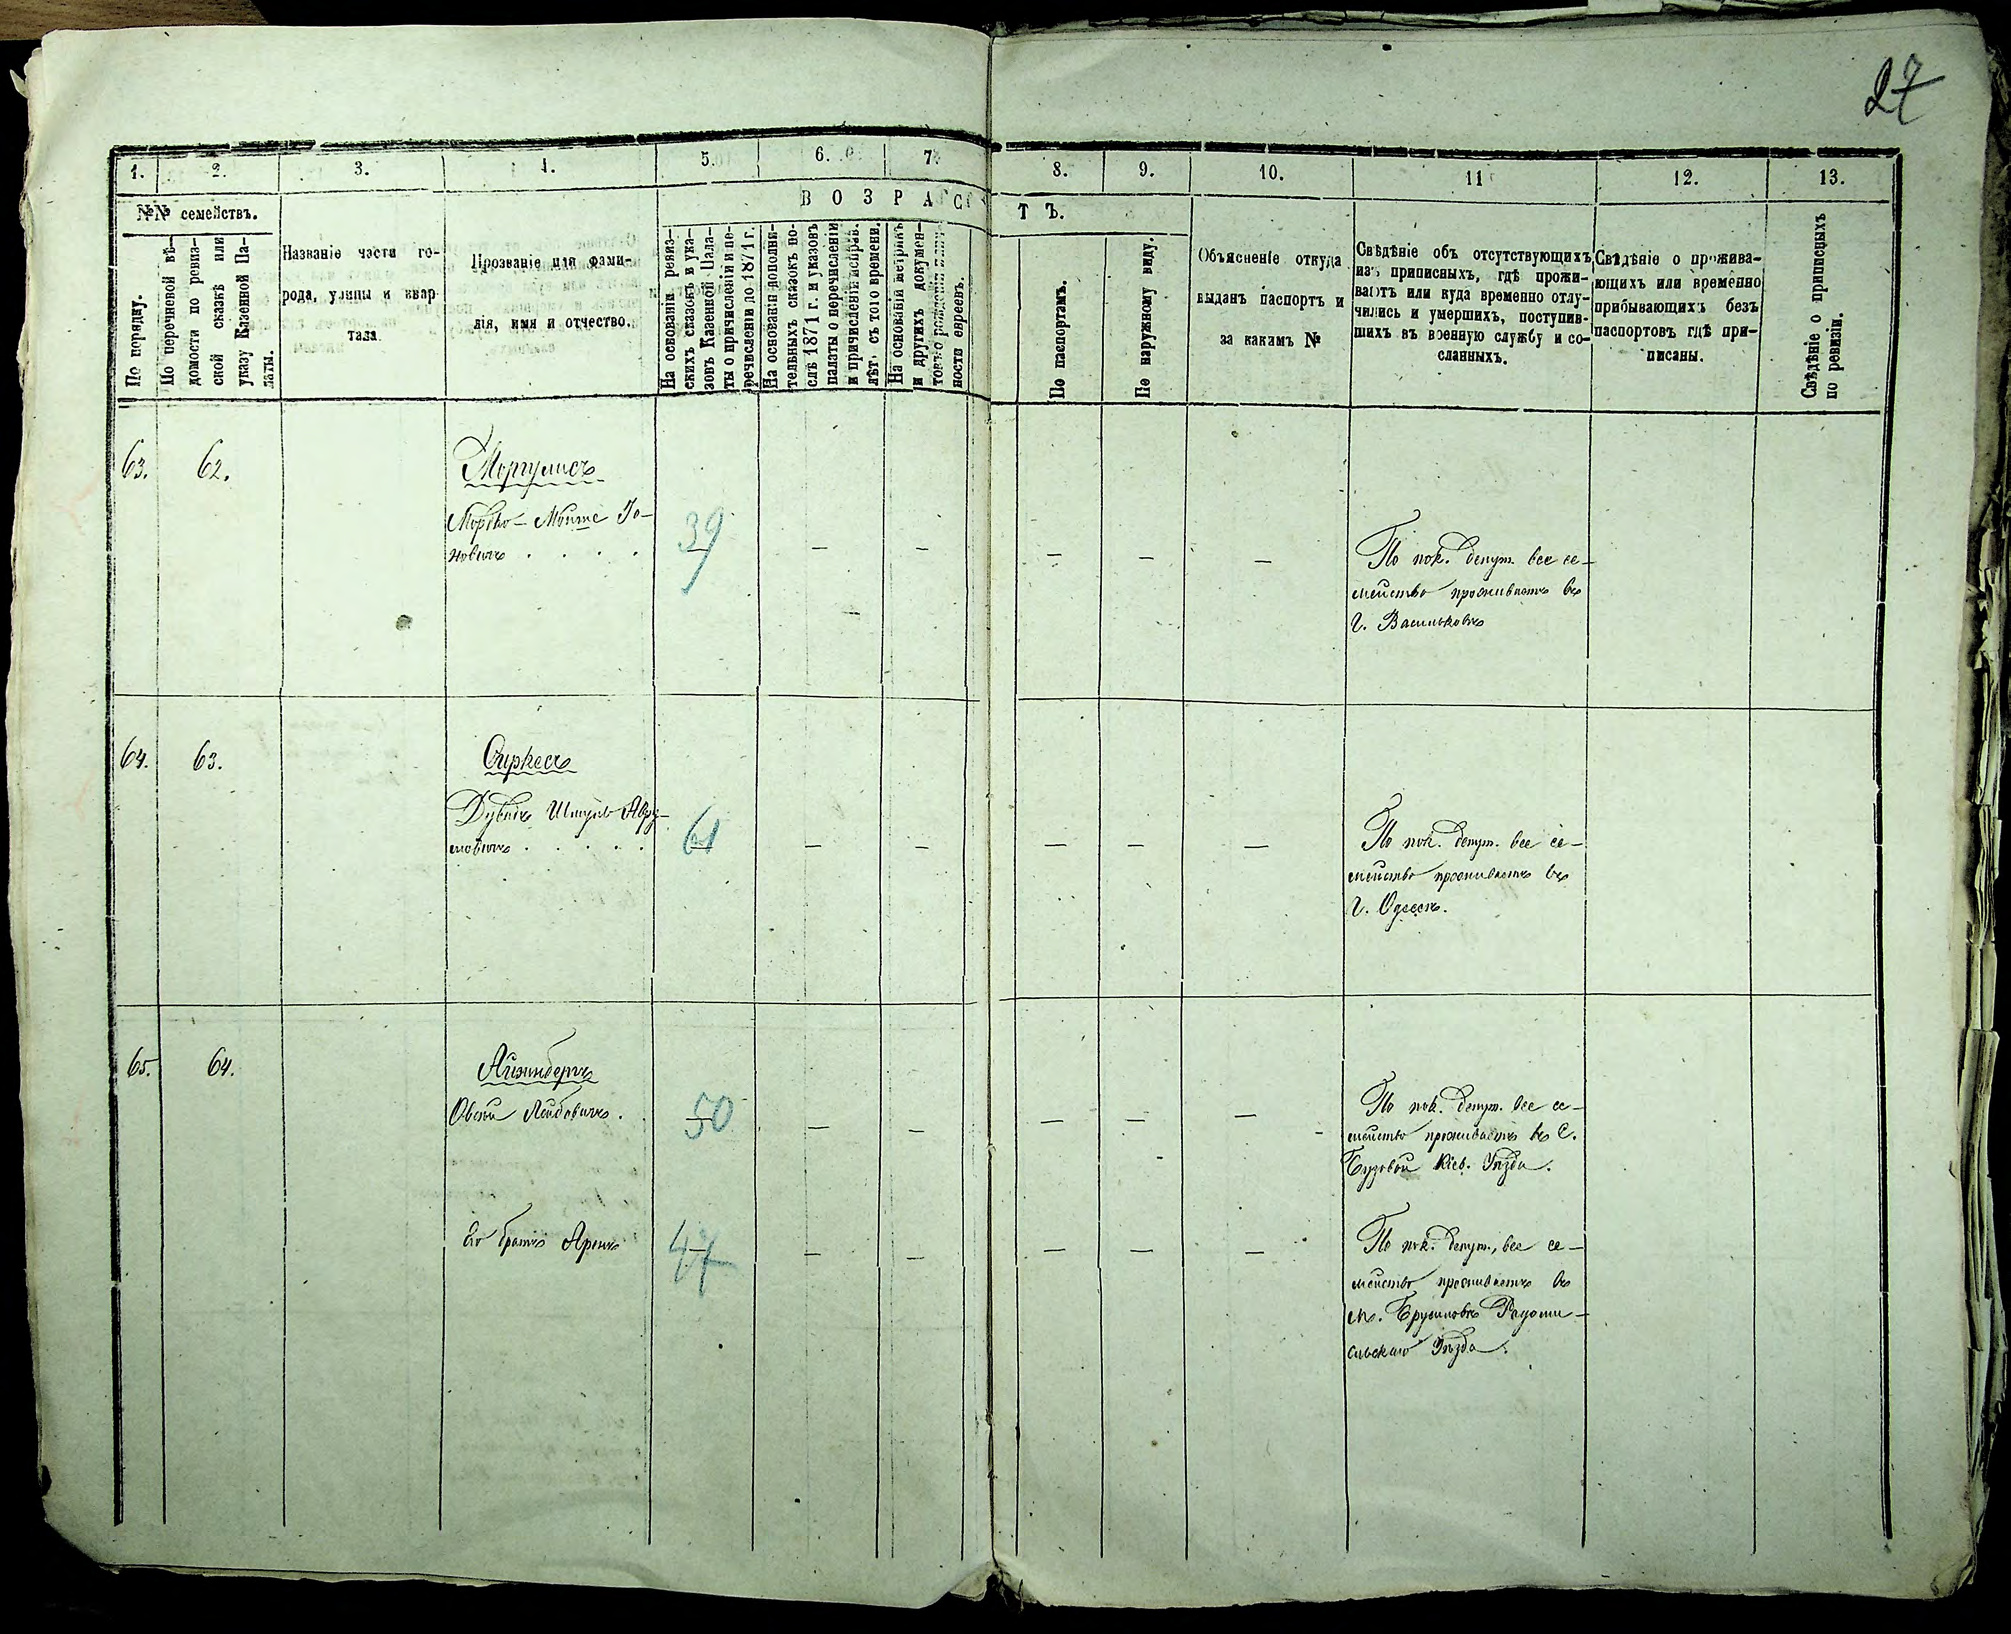 27
1. 2. 3. 4. 5. 6. 7. 8. 9. 10. 11 12. 13.
№№ семействъ.
ВОЗРАСТЪ.
По порядку.
По перечневой вѣ-
домости по ревиз-
ской сказкѣ или
указу Казенной Па-
латы.
Названіе части го-
рода, улицы и квар
тала
Прозваніе или фами-
лія, имя и отчество.
На основаніи ревиз-
скихъ сказокъ и ука-
зовъ Казенной Пала-
ты о причисленіи и пе-
речисленіи до 1871 г.
На основаніи дополни-
тельныхъ сказокъ по-
слѣ 1871 г. и указовъ
палаты о перечисленіи
и причисленіи исправ.
лѣтъ съ того времени.
На основаніи метрикъ
и другихъ докумен-
товъ о рожденіи
ности евреевъ.
По паспортамъ.
По наружному виду.
Объясненіе откуда
выданъ паспортъ и
за какимъ №
Свѣдѣніе объ отсутствующихъ
изъ приписныхъ, гдѣ прожи-
ваютъ или куда временно отлу-
чились и умершихъ, поступив-
шихъ въ военную службу и со-
сланныхъ.
Свѣдѣніе о прожива-
ющихъ или временно
прибывающихъ безъ
паспортовъ гдѣ при-
писаны.
Свѣдѣніе о приписныхъ
по ревизіи.
63. 62. Моргулисъ
Мортко-Мойше Іо-
новичъ . . . . 39 — — — — —
По пок. депут. все се-
мейство проживаетъ въ
г. Васильковѣ
64. 63. Сиркесъ
Дувидъ Шмуль Авру-
мовичъ . . . . . 61 — — — — —
По пок. депут. все се-
мейство проживаетъ въ
г. Одессѣ.
65. 64. Айзинбергъ
Овсей Лейбовичъ . 50 — — — — —
По пок. депут. все се-
мейство проживаетъ въ С.
Бузовой Кіев. Уѣзда.
Его братъ Аронъ 47 — — — — —
По пок. депут., все се-
мейство проживаетъ въ
м. Брусиловѣ Радомы-
сльскаго Уѣзда.